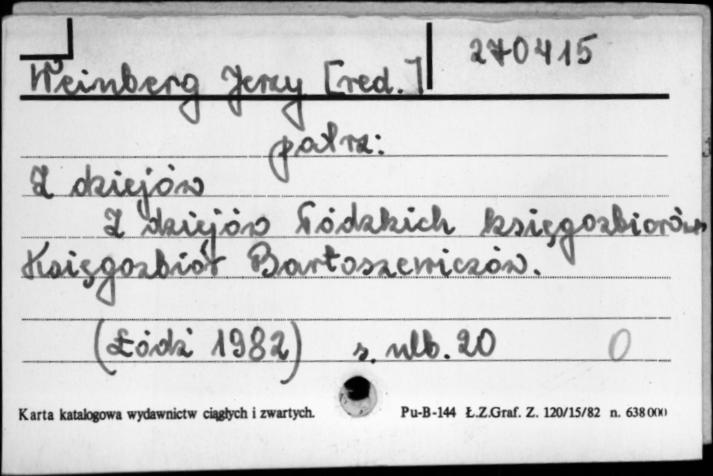 270415
Weinberg Jerzy [red.]
patrz:
Z dziejów
Z dziejów łódzkich księgozbiorów
Księgozbiór Bartoszewiczów.
(Łódź 1982) s. nlb. 20 0
Karta katalogowa wydawnictw ciągłych i zwartych. Pu-B-144 Ł.Z.Graf. Z. 120/15/82 n. 638000